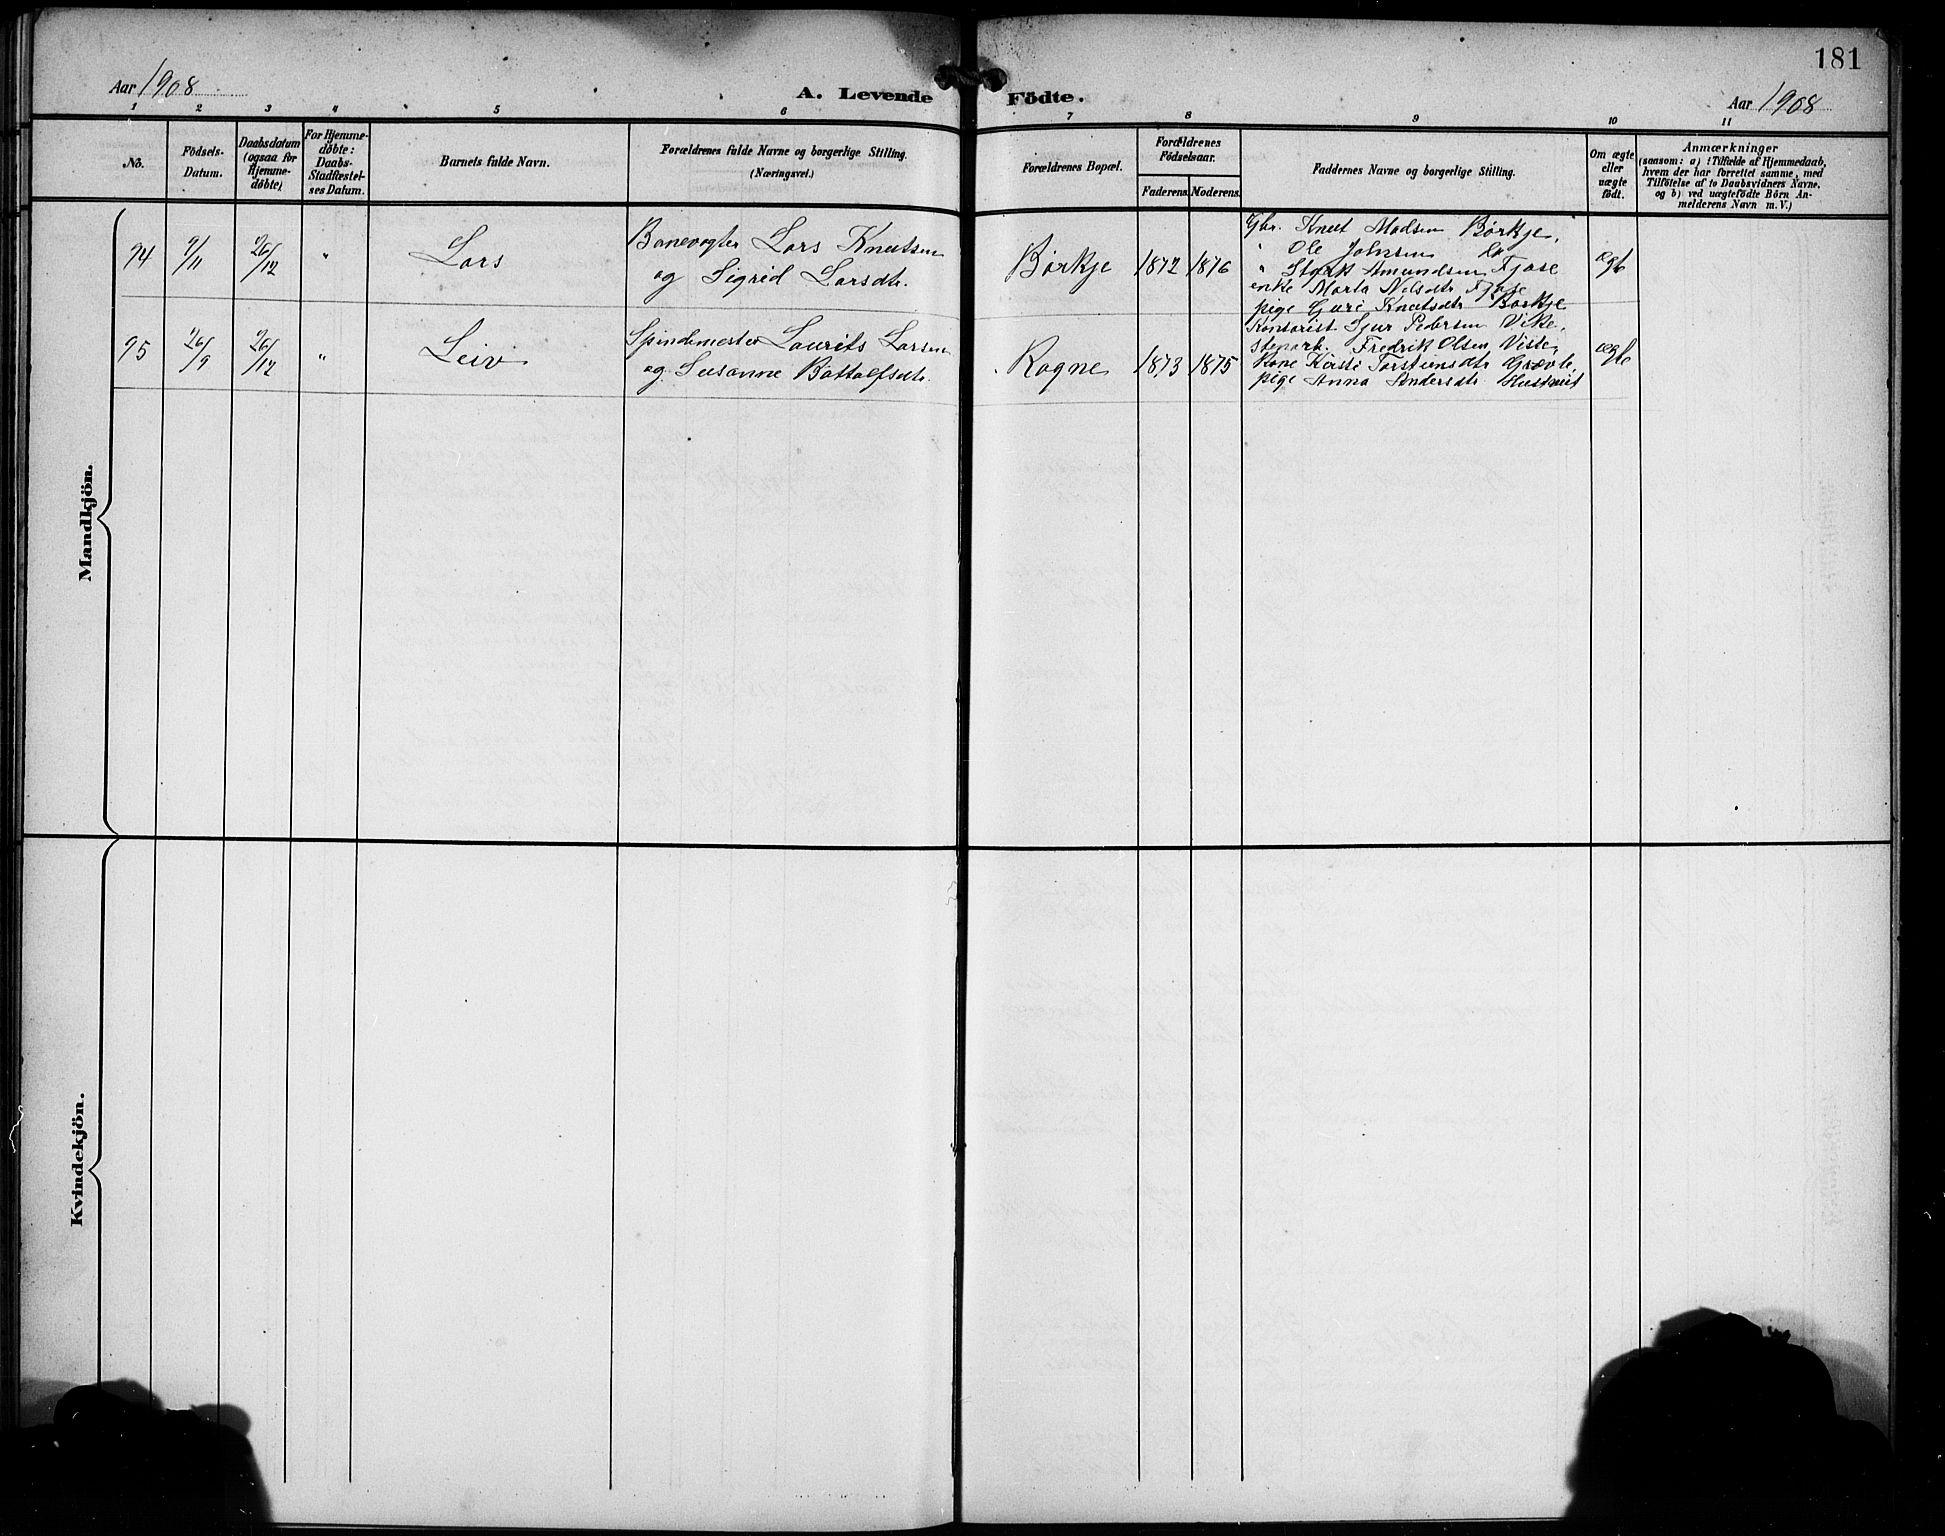 181
Aar 1908
A. Levende Födte.
Aar 1908
1 2 3 4 5 6 7 8 9 10 11
No.
Födsels-Datum.
Daabsdatum (ogsaa for Hjemme-döbte)
For Hjemme-döbte: Daabs-Stadfæstel-ses Datum.
Barnets fulde Navn.
Forældrenes fulde Navne og borgerlige Stilling.
(Næringsvei.)
Forældrenes Bopæl.
Forældrenes Födselsaar.
Faderens. Moderens.
Faddernes Navne og borgerlige Stilling.
Om ægte eller uægte født.
Anmærkninger
(saasom: a) i Tilfælde af Hjemmedaab,
hvem der har forrettet samme, med
Tilföielse af to Daabsvidners Navne,
og b) ved uægtefödte Börn An-
melderens Navn m. V.)
Mandkjön.
94 9/11 26/12 " Lars
Banevogter Lars Knutsen
og Sigrid Larsdtr.
Børkje 1872 1876
Gbr. Knut Madsen Børkje,
" Ole Johnsen do
" Amundsen Fjose
enke Marta Nilsdtr Fjose
pige Guri Knutsdtr Børkje
ægte
95 26/9 26/12 " Leiv
Spindemester Laurits Larsen
og Susanne Battolfsdtr.
Rogne 1873 1875
Kontorist Sjur Pedersen Vike,
Fredrik Olsen Viste,
Kone Kirsti Torsteinsdtr
pige Anna Andersdtr
ægte
Kvindekjön.